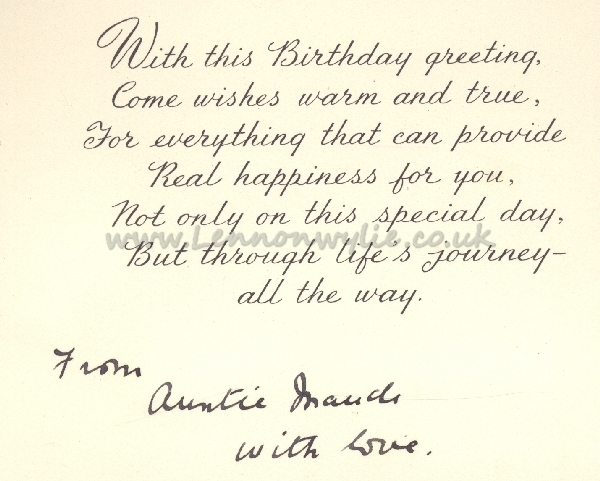 With this Birthday greeting,
Come wishes warm and true,
For everything that can provide
Real happiness for you,
Not only on this special day,
www.Lennonwylie.co.uk
But through life's journey—
all the way.
From
Auntie Maude
with love.